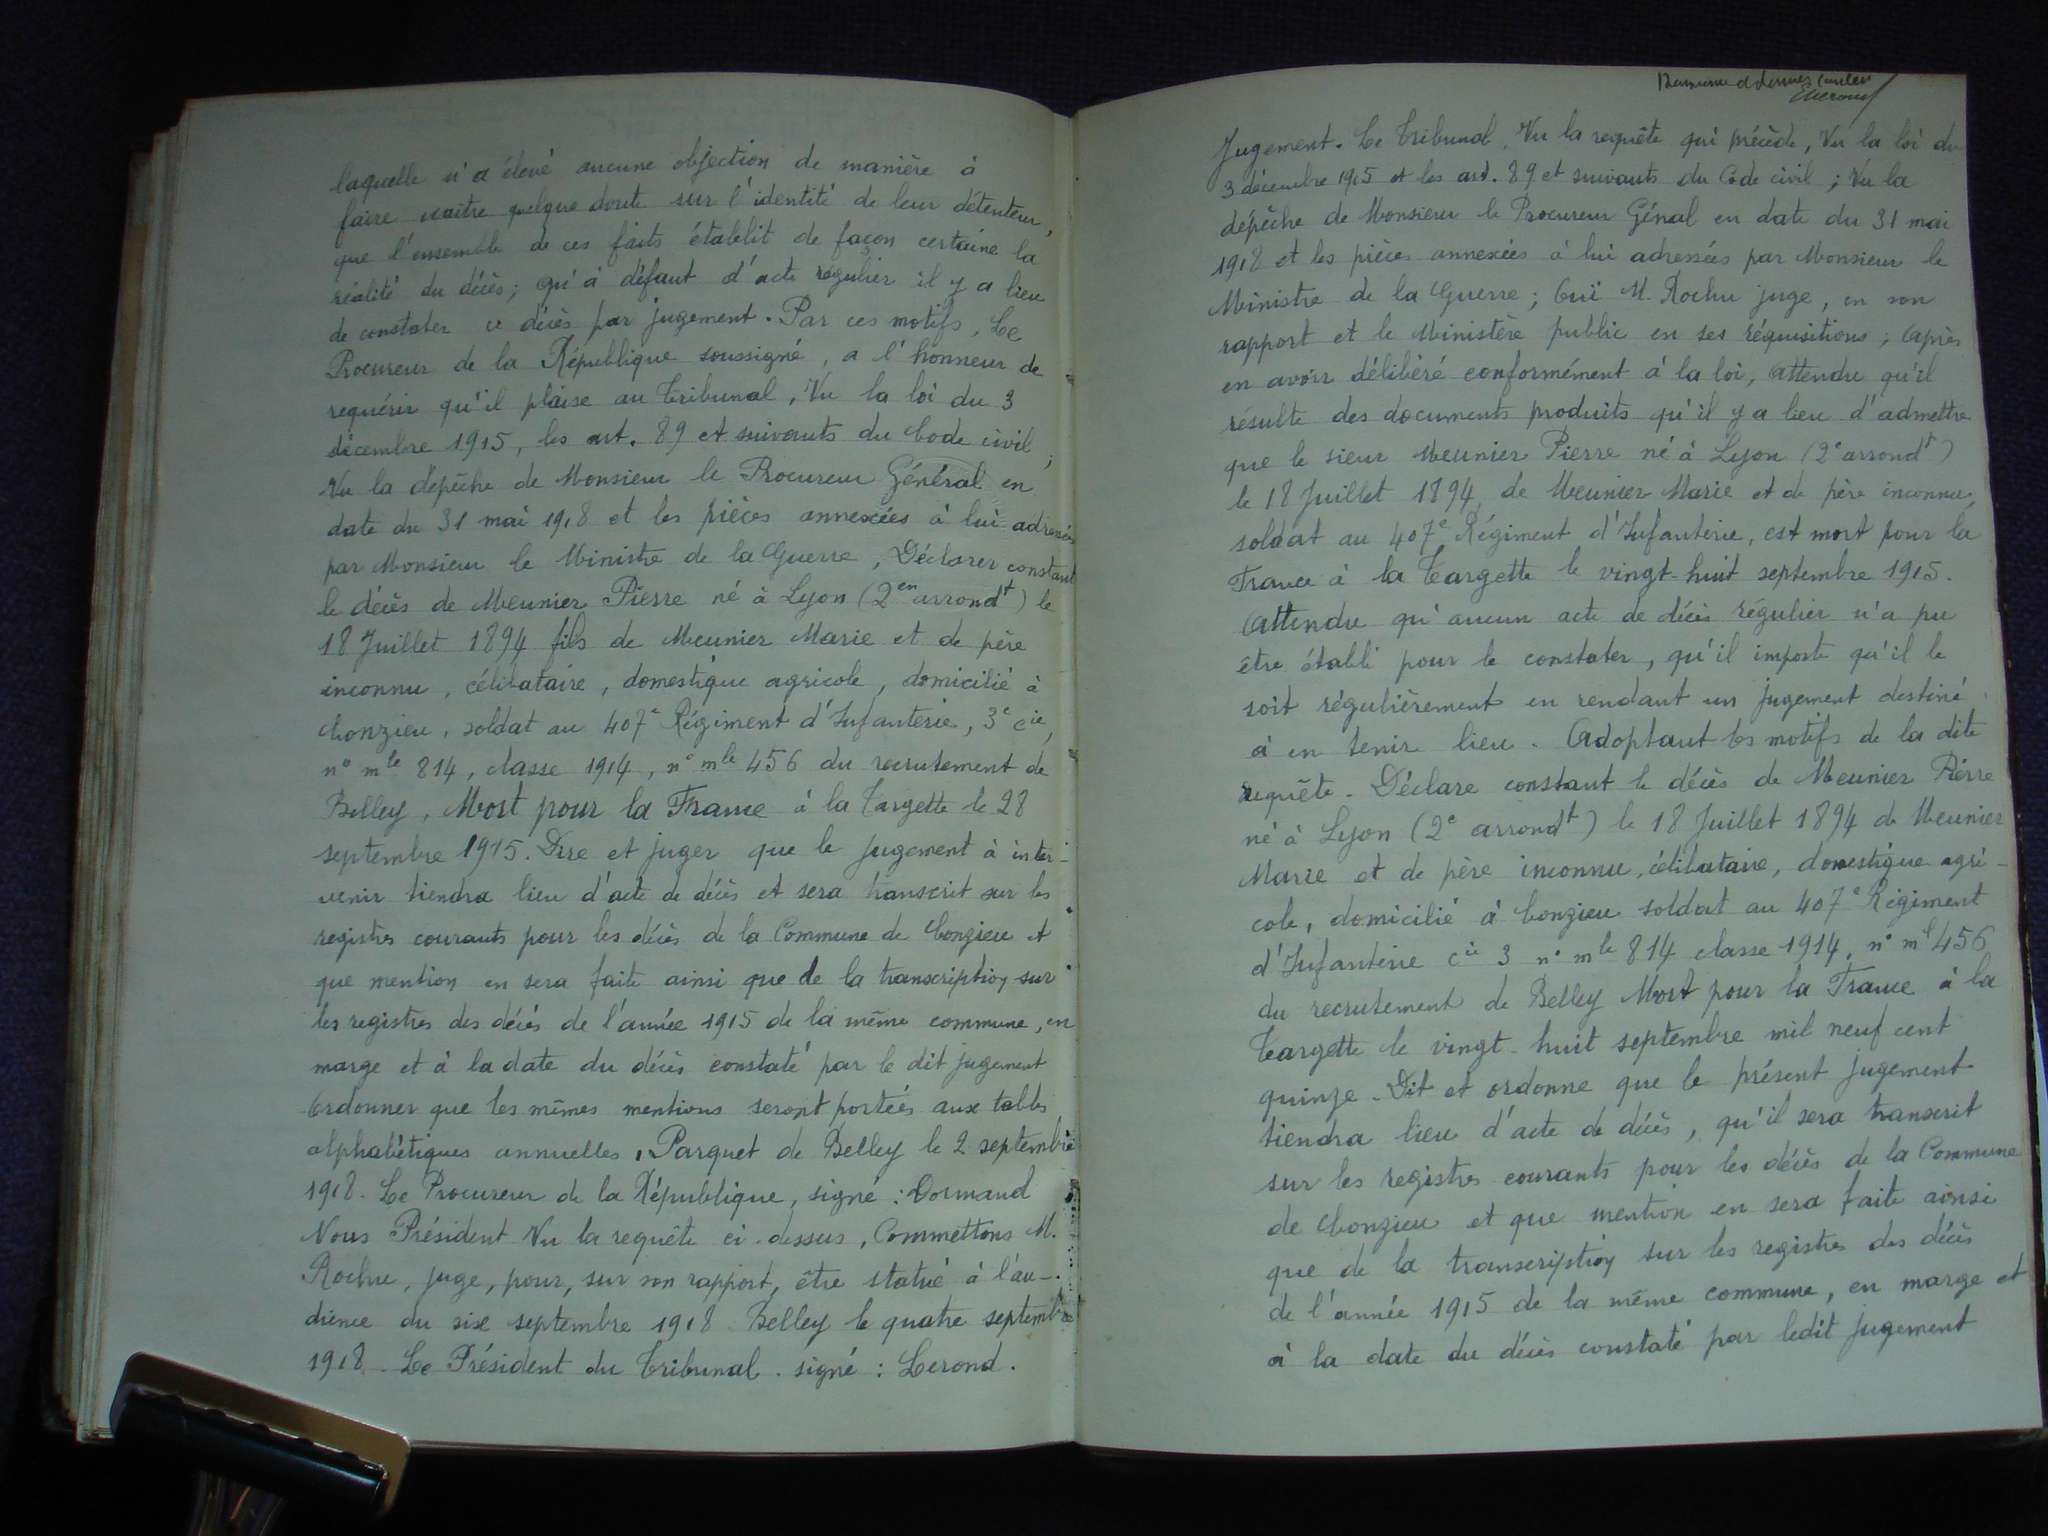 laquelle n'a élevé aucune objection de manière à
faire naitre quelque doute sur l'identité de leur détenteur,
que l'ensemble de ces faits établit de façon certaine la
réalité du décès; qu'à défaut d'acte régulier il y a lieu
de constater ce décès par jugement. Par ces motifs, Le
Procureur de la République soussigné, a l'honneur de
requérir qu'il plaise au Tribunal, Vu la loi du 3
décembre 1915, les art. 89 et suivants du Code civil;
Vu la dépêche de Monsieur le Procureur Général en
date du 31 mai 1918 et les pièces annexées à lui adressées
par Monsieur le Ministre de la Guerre, Déclarer constant
le décès de Meunier Pierre né à Lyon (2en arrondt) le
18 Juillet 1894 fils de Meunier Marie et de père
inconnu, célibataire, domestique agricole, domicilié à
Conzieu, soldat au 407e Régiment d'Infanterie, 3e Cie,
n° mle 814, classe 1914, n° mle 456 du recrutement de
Belley, Mort pour la France à la Targette le 28
septembre 1915. Dire et juger que le jugement à inter-
venir tiendra lieu d'acte de décès et sera transcrit sur les
registres courants pour les décès de la Commune de Conzieu et
que mention en sera faite ainsi que de la transcription sur
les registres des décès de l'année 1915 de la même commune, en
marge et à la date du décès constaté par le dit jugement
Ordonner que les mêmes mentions seront portées aux tables
alphabétiques annuelles, Parquet de Belley le 2 septembre
1918. Le Procureur de la République, signé: Dormand
Nous Président Vu la requête ci-dessus, Commettons M.
Rochu, juge, pour, sur son rapport, être statué à l'au-
dience du six septembre 1918 Belley le quatre septembre
1918. Le Président du Tribunal. signé: Lerond.
Jugement. Le Tribunal, Vu la requête qui précède, Vu la loi du
3 décembre 1915 et les art. 89 et suivants du Code civil; Vu la
dépêche de Monsieur le Procureur Génal en date du 31 mai
1918 et les pièces annexées à lui adressées par Monsieur le
Ministre de la Guerre; Oui M. Rochu juge, en son
rapport et le Ministère public en ses réquisitions; Après
en avoir délibéré conformément à la loi, Attendu qu'il
résulte des documents produits qu'il y a lieu d'admettre
que le sieur Meunier Pierre né à Lyon (2e arrondt)
le 18 Juillet 1894, de Meunier Marie et de père inconnu,
soldat au 407e Régiment d'Infanterie, est mort pour la
France à la Targette le vingt-huit septembre 1915.
Attendu qu'aucun acte de décès régulier n'a pu
être établi pour le constater, qu'il importe qu'il le
soit régulièrement en rendant un jugement destiné
à en tenir lieu. Adoptant les motifs de la dite
requête. Déclare constant le décès de Meunier Pierre
né à Lyon (2e arrondt) le 18 Juillet 1894 de Meunier
Marie et de père inconnu, célibataire, domestique agri-
cole, domicilié à Conzieu soldat au 407e Régiment
d'Infanterie Cie 3 n° mle 814 classe 1914, n° ml 456
du recrutement de Belley Mort pour la France à la
Targette le vingt-huit septembre mil neuf cent
quinze. Dit et ordonne que le présent jugement
tiendra lieu d'acte de décès, qu'il sera transcrit
sur les registres courants pour les décès de la Commune
de Conzieu et que mention en sera faite ainsi
que de la transcription sur les registres des décès
de l'année 1915 de la même commune, en marge et
à la date du décès constaté par ledit jugement